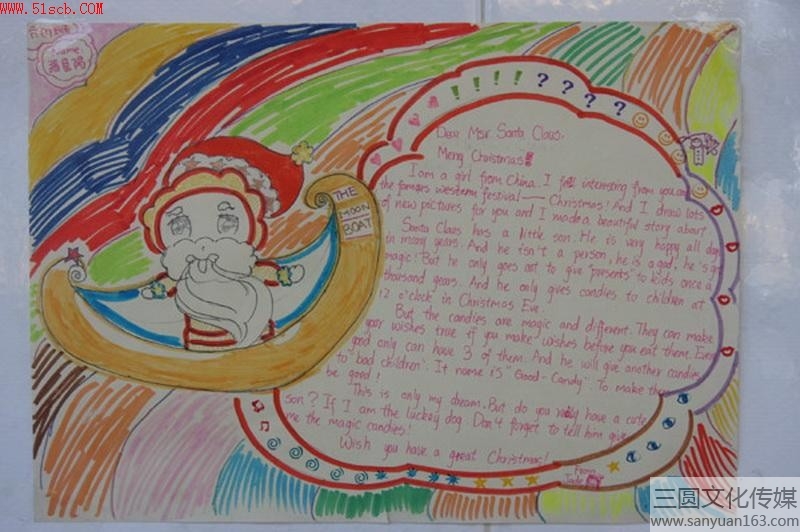 www.51scb.com
Name
THE
MOON
BOAT
! ! ! ! ? ? ? ?
Dear Msr Santa Claus,
Merry Christmas
I am a girl from China. I fell interesting from you and
the famous western festival — Christmas! And I draw lots
of new pictures for you and I made a beautiful story about
Santa Claus has a little son. He is very happy all day
in many years. And he isn't a person, he is a god, he's got
magic! But he only goes out to give "presents" to kids once a
thousand years. And he only gives candies to children at
12 o'clock in Christmas Eve.
But the candies are magic and different. They can make
your wishes true if you make wishes before you eat them. Even
good only can have 3 of them. And he will give another candies
to "bad children". It name is "Good-Candy". To make them
be good!
This is only my dream. But do you really have a cute
son? If I am the luckey dog. Don't forget to tell him give
me the magic candies!
Wish you have a great Christmas!
From
Jade
三圆文化传媒
www.sanyuan163.com